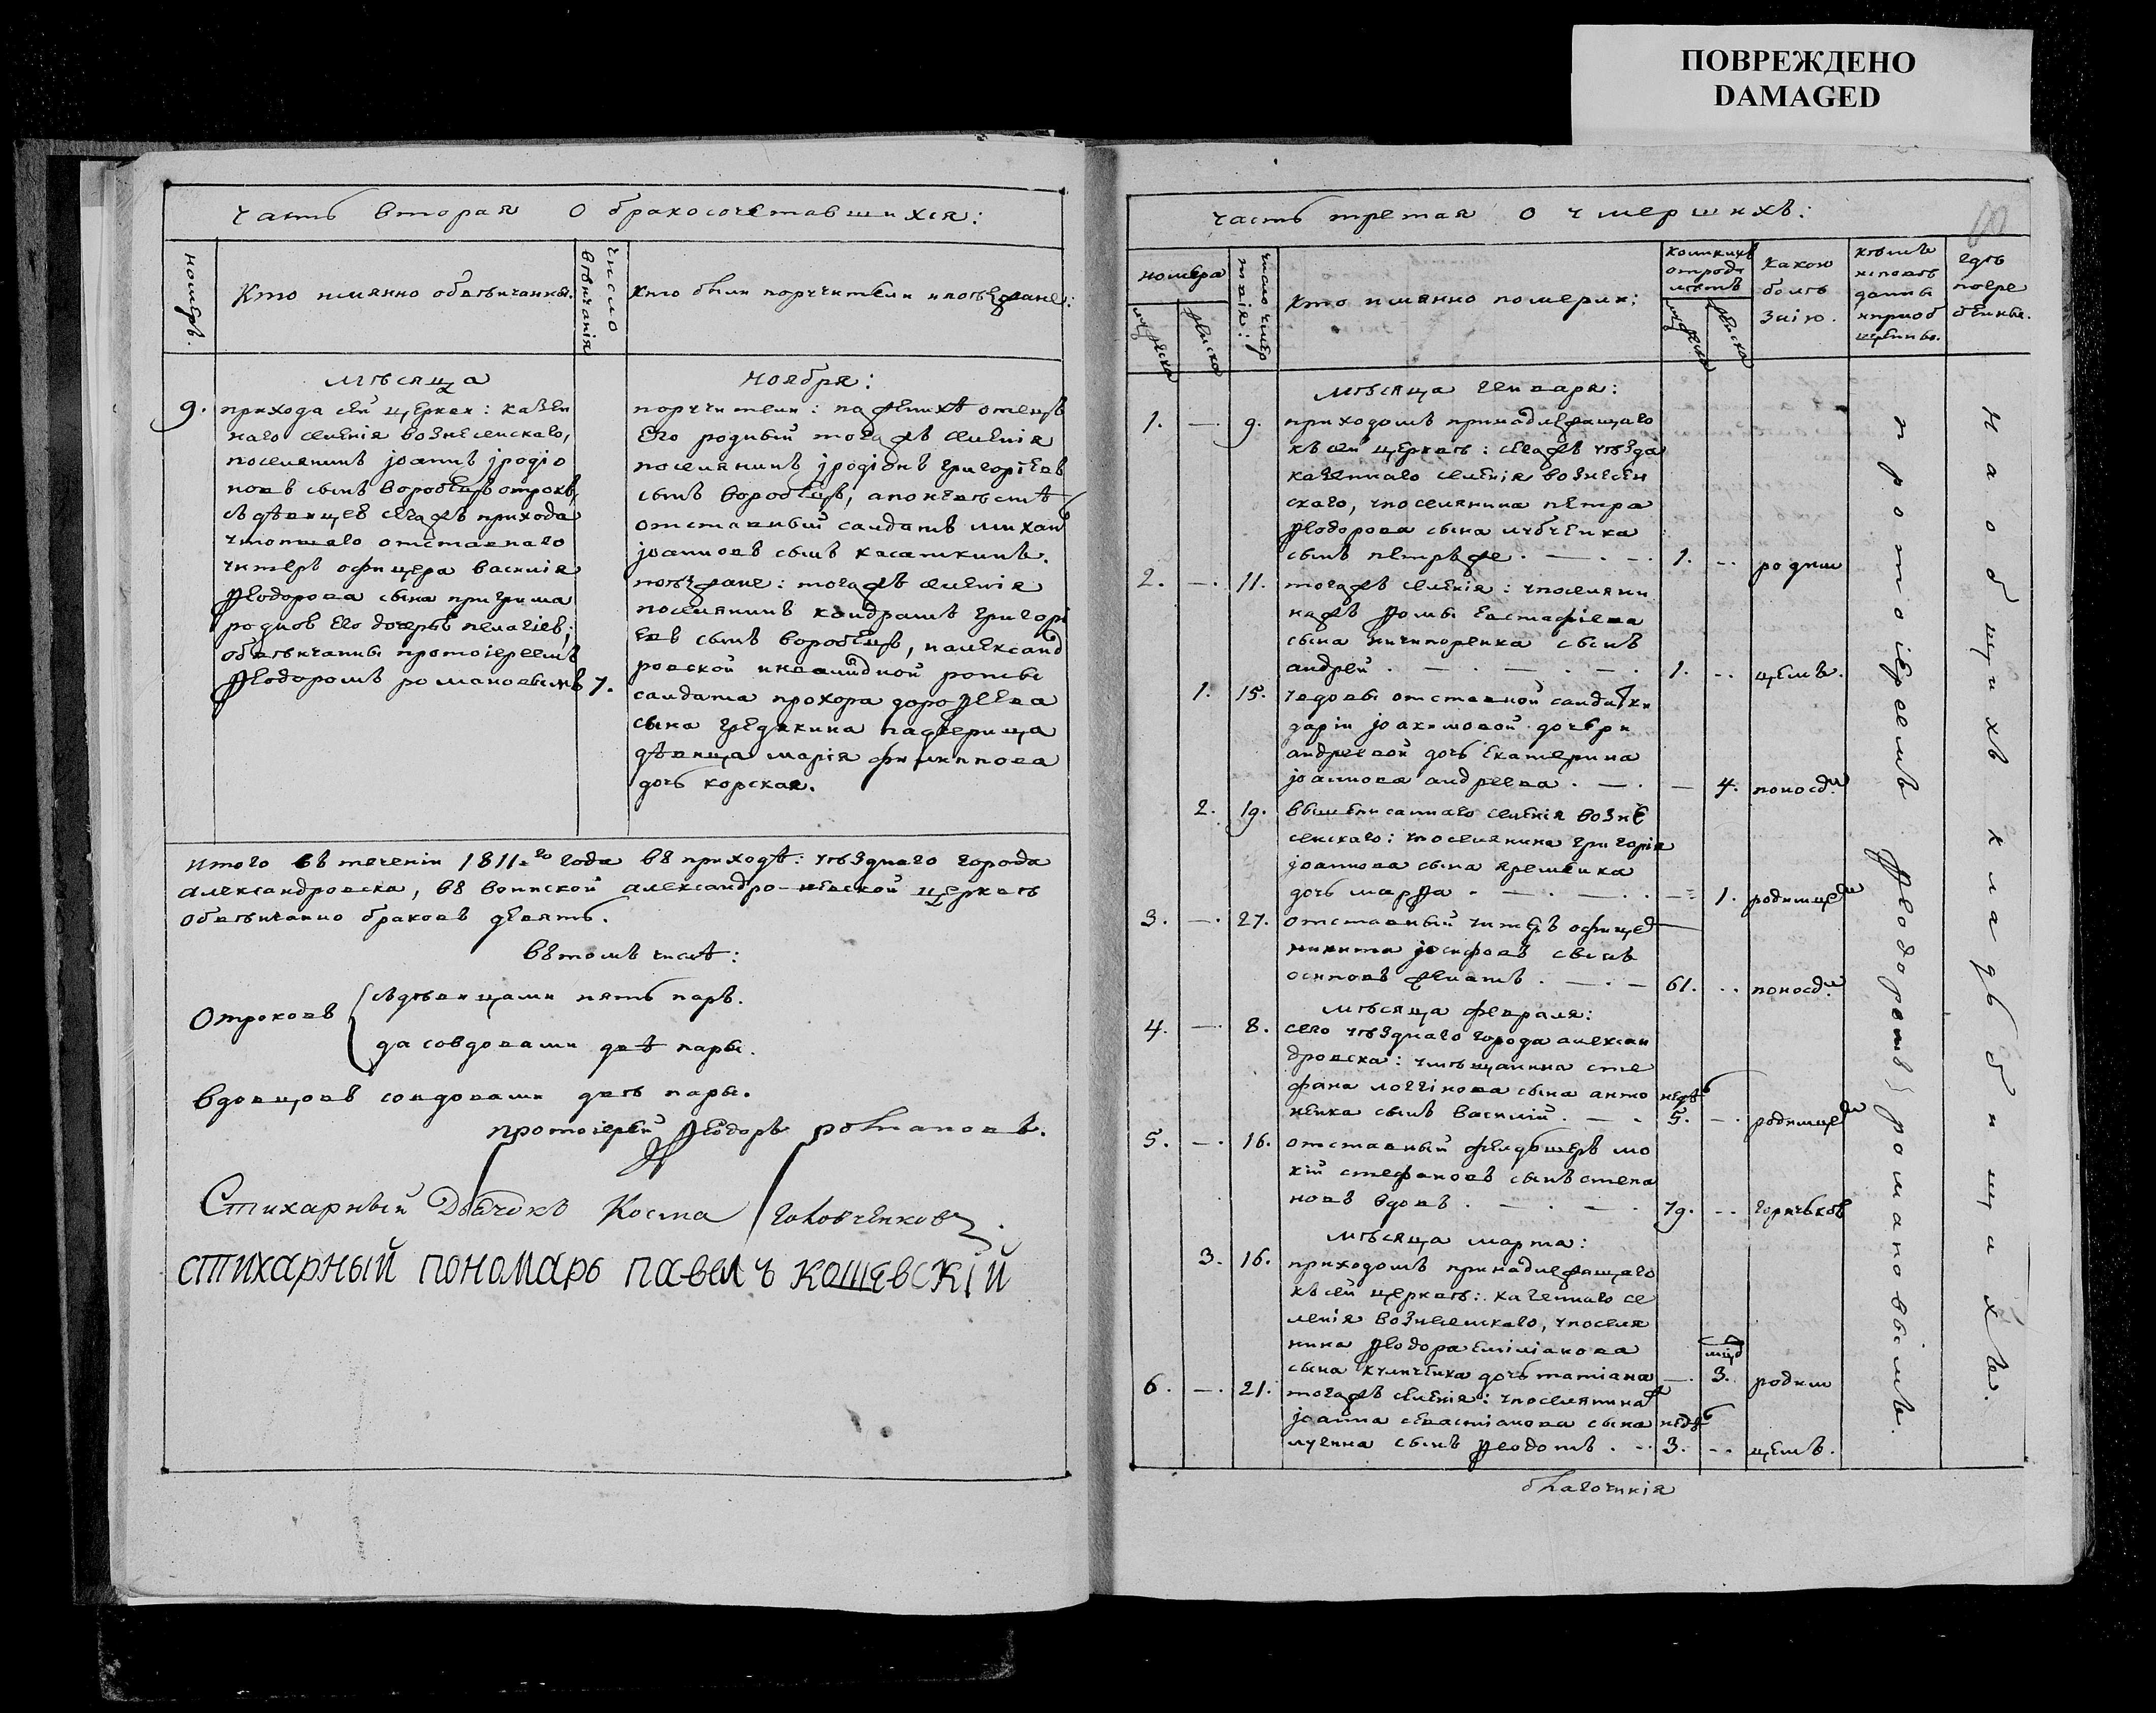 ПОВРЕЖДЕНО
DAMAGED
часть вторая о бракосочетавшихся:
номеръ.
Кто имянно обвѣнчанны.
число вѣнчанія
Кто были поручители и поѣзжане:
мѣсяца
ноября:
9. прихода сей церкви: казен
наго селенія вознесенскаго,
поселянинъ іоаннъ іродіо
новъ сынъ воробецъ отрокъ,
съ дѣвицею сегожъ прихода
отставнаго
унтеръ офицера василія
ѳеодорова сына
родною его дочерью пелагіею;
обвѣнчанны протоіереемъ
ѳеодоромъ романовымъ 7.
поручители: по женихѣ отецъ
его родный тогожъ селенія
поселянинъ іродіонъ григоріевъ
сынъ воробецъ, а по невѣстѣ
отставный салдатъ михаилъ
іоанновъ сынъ касаткинъ.
поѣзжане: тогожъ селенія
поселянинъ кондратъ григорі
евъ сынъ воробецъ, и александ
ровской инвалидной роты
салдата прохора дороѳеева
сына падчерица
дѣвица марія филиппова
дочь корская.
итого въ теченіи 1811-го года въ приходѣ: уѣзднаго города
александровска, въ воинской александро-невской церквѣ
обвѣнчанно браковъ девять.
въ томъ числѣ:
Отроковъ
съ дѣвицами пять паръ.
да со вдовами двѣ пары.
вдовцовъ со вдовами двѣ пары.
протоіерей ѳеодоръ романовъ.
Стихарный Дьячокъ Косма Головченковъ.
стихарный пономарь павелъ кошевскій
часть третая о умершихъ:
номера
мужеска
женска
число умертвія:
Кто имянно померли:
коликихъ
отроду
лѣтъ
мужеска
женска
какою
болѣ
знію.
кѣмъ
исповѣ
данны
и приоб
щенны.
гдѣ
погре
бенны.
мѣсяца генваря:
1. — 9. приходомъ принадлежащаго
къ сей церквѣ: сегожъ уѣзда
казеннаго селенія вознесен
скаго, у поселянина петра
ѳеодорова сына
сынъ петръ же. 1. родим
2. — 11. тогожъ селенія: у поселяни
на жъ ѳомы евстафіева
сына ничипоренка сынъ
андрей 1. цемъ.
1. 15. у вдовы отставной салдатки
даріи іоакимовой дочери
андреевой дочь екатерина
іоаннова андреева. — 4. поносо
2. 19. вышеписаннаго селенія возне
сенскаго: у поселянина григорія
іоаннова сына яременка
дочь марѳа 1. родимце
3. — 27. отставный унтеръ офицеръ
никита іосифовъ сынъ
осиповъ женатъ 61. поносо
мѣсяца февраля:
4. — 8. сего уѣзднаго города алексан
дровска: у мѣщанина сте
фана логгінова сына анто недѣ
ненка сынъ василій 5. родимце
5. — 16. отставный фелдшеръ мо
кій стефановъ сынъ степа
новъ вдовъ 79. горячькою
мѣсяца марта:
3. 16. приходомъ принадлежащаго
къ сей церквѣ: казеннаго се
ленія вознесенскаго, у поселя
нина ѳеодора емиліанова
сына дочь татіана — 3. родим
6. — 21. тогожъ селенія: у поселянина
іоанна севастіанова сына недѣ
сынъ ѳеодотъ 3. цемъ.
протоіереемъ ѳеодоромъ романовымъ.
на общихъ кладбищахъ.
благочинія